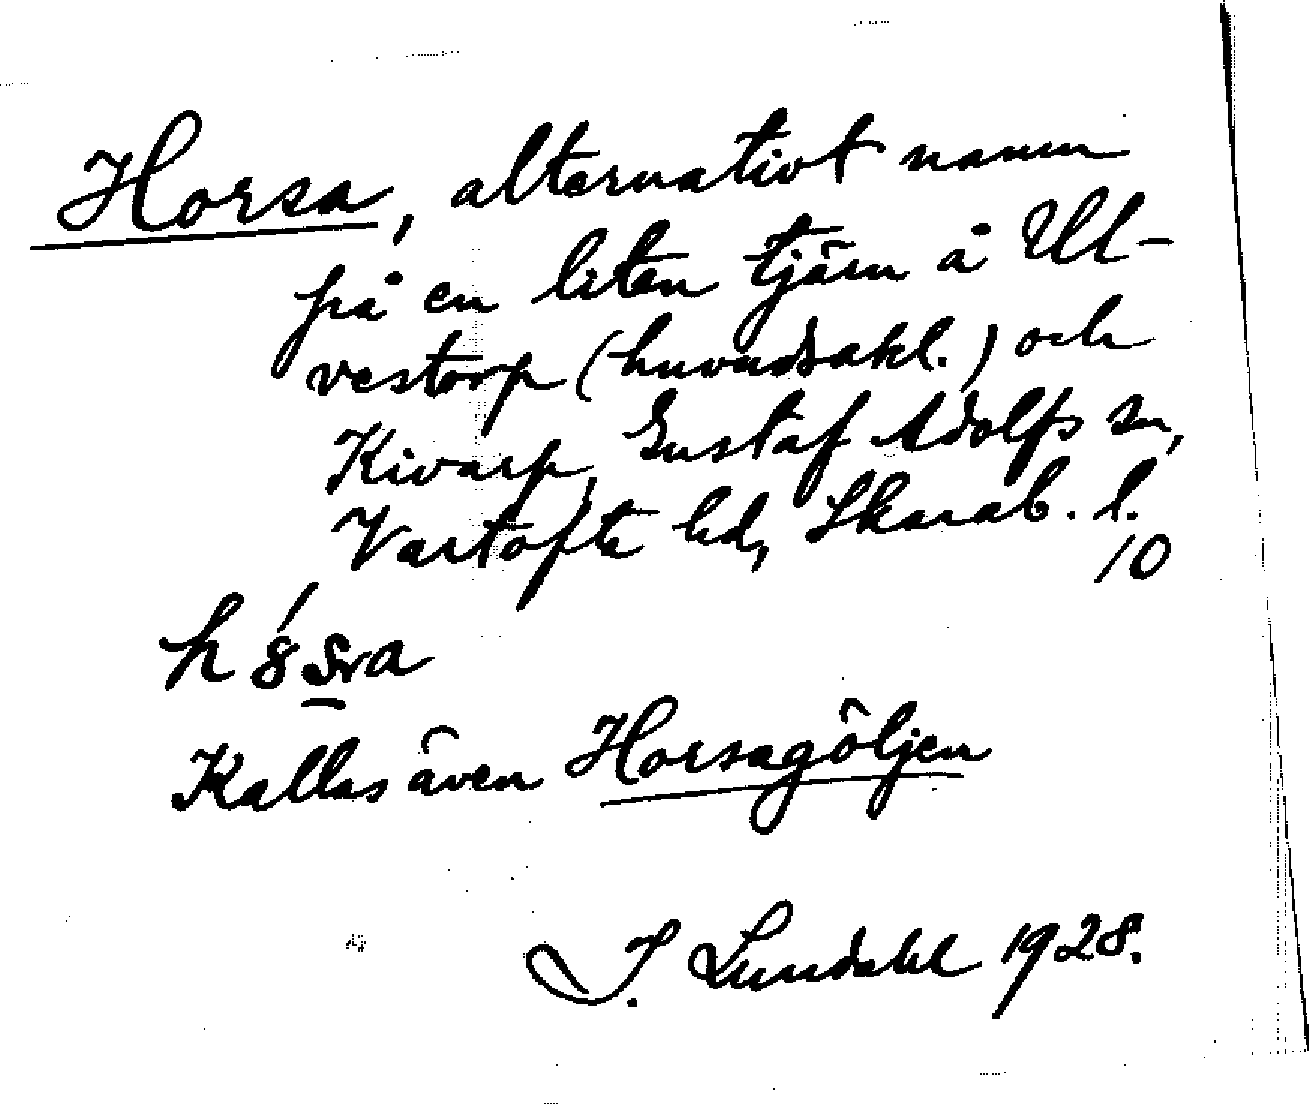 Horsa, alternativt namn
på en liten tjärn å Ul-
vestorp (huvudsakl.) och
Kivarp, Gustaf Adolfs sn,
Vartofta hd, Skarab. l.
10
Kallas även Horsagöljen
I. Lundahl 1928.